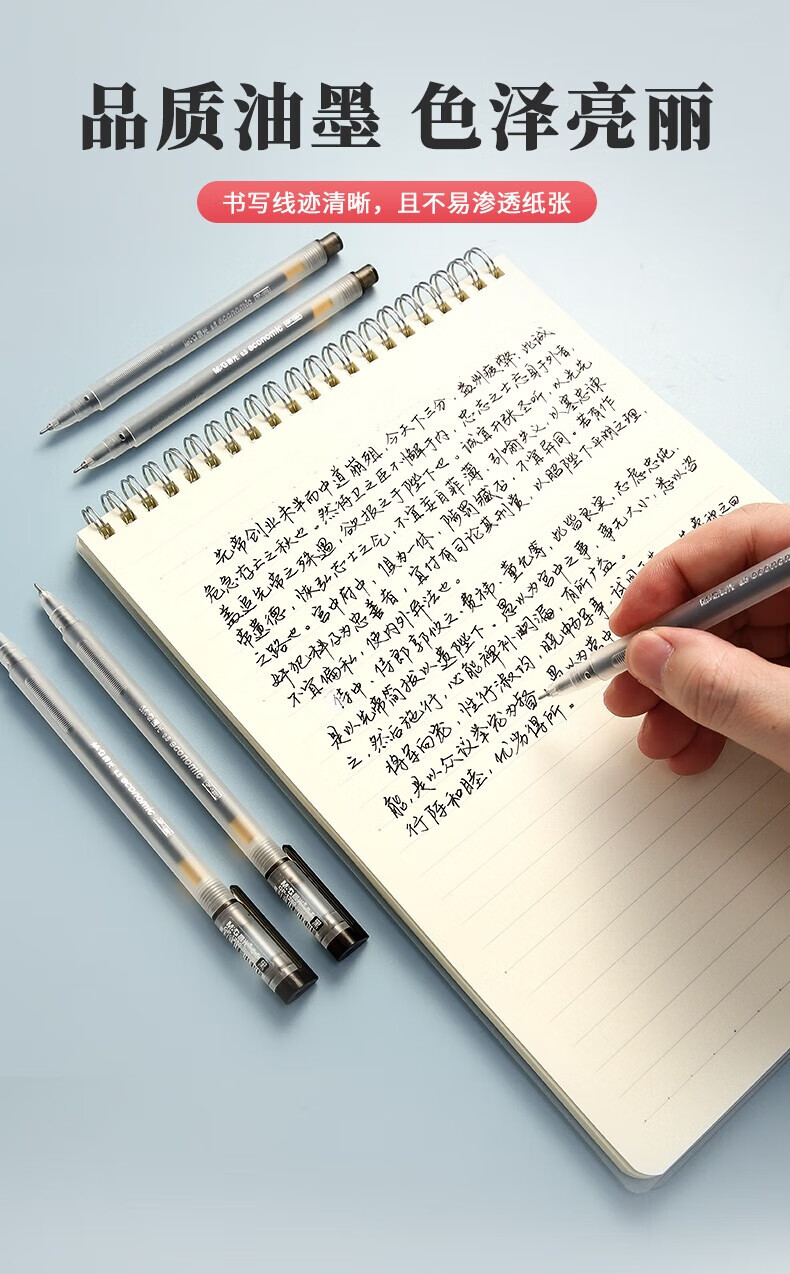 品质油墨 色泽亮丽
书写线迹清晰，且不易渗透纸张
M&G晨光 0.5 economic
M&G晨光 0.5 economic
先帝创业未半而中道崩殂，今天下三分，益州疲弊，此诚
危急存亡之秋也。然侍卫之臣不懈于内，忠志之士忘身于外者，
盖追先帝之殊遇，欲报之于陛下也。诚宜开张圣听，以光先
帝遗德，恢弘志士之气，不宜妄自菲薄，引喻失义，以塞忠谏
之路也。宫中府中，俱为一体，陟罚臧否，不宜异同。若有作
奸犯科及为忠善者，宜付有司论其刑赏，以昭陛下平明之理，
不宜偏私，使内外异法也。
侍中、侍郎郭攸之、费祎、董允等，此皆良实，志虑忠纯，
是以先帝简拔以遗陛下。愚以为宫中之事，事无大小，悉以咨
之，然后施行，必能裨补阙漏，有所广益。
将军向宠，性行淑均，晓畅军事，试用
能，是以众议举宠为督
愚以为营中
行阵和睦，优劣得所。
M&G晨光 0.5 economic
M&G晨光 0.5 economic
M&G晨光
黑
M&G晨光
黑